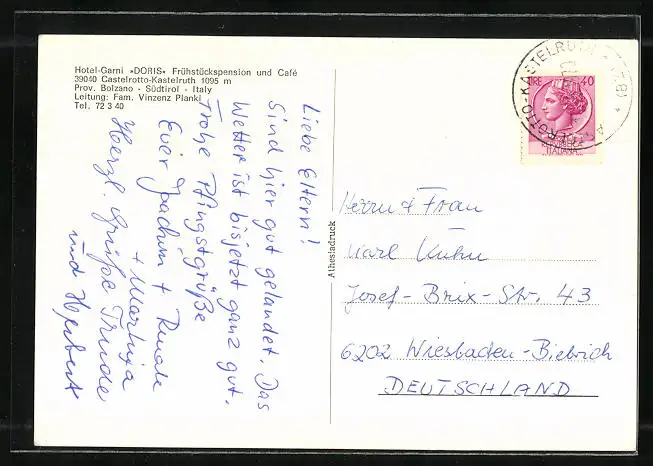 Hotel-Garni »DORIS« Frühstückspension und Café
39040 Castelrotto-Kastelruth 1095 m
Prov. Bolzano - Südtirol - Italy
Leitung: Fam. Vinzenz Plankl
Tel. 72 3 40
Liebe Eltern!
Sind hier gut gelandet. Das
Wetter ist bis jetzt ganz gut.
Frohe Pfingstgrüße
Euer Joachim +
+ Martina
Herzl. Grüße Trude
und Herbert
Athesiadruck
LIRE 40
REPUBBLICA
ITALIANA
CASTELROTTO-KASTELRUTH
Herrn + Frau
Karl Kuhn
Josef-Brix-Str. 43
6202 Wiesbaden-Biebrich
DEUTSCHLAND